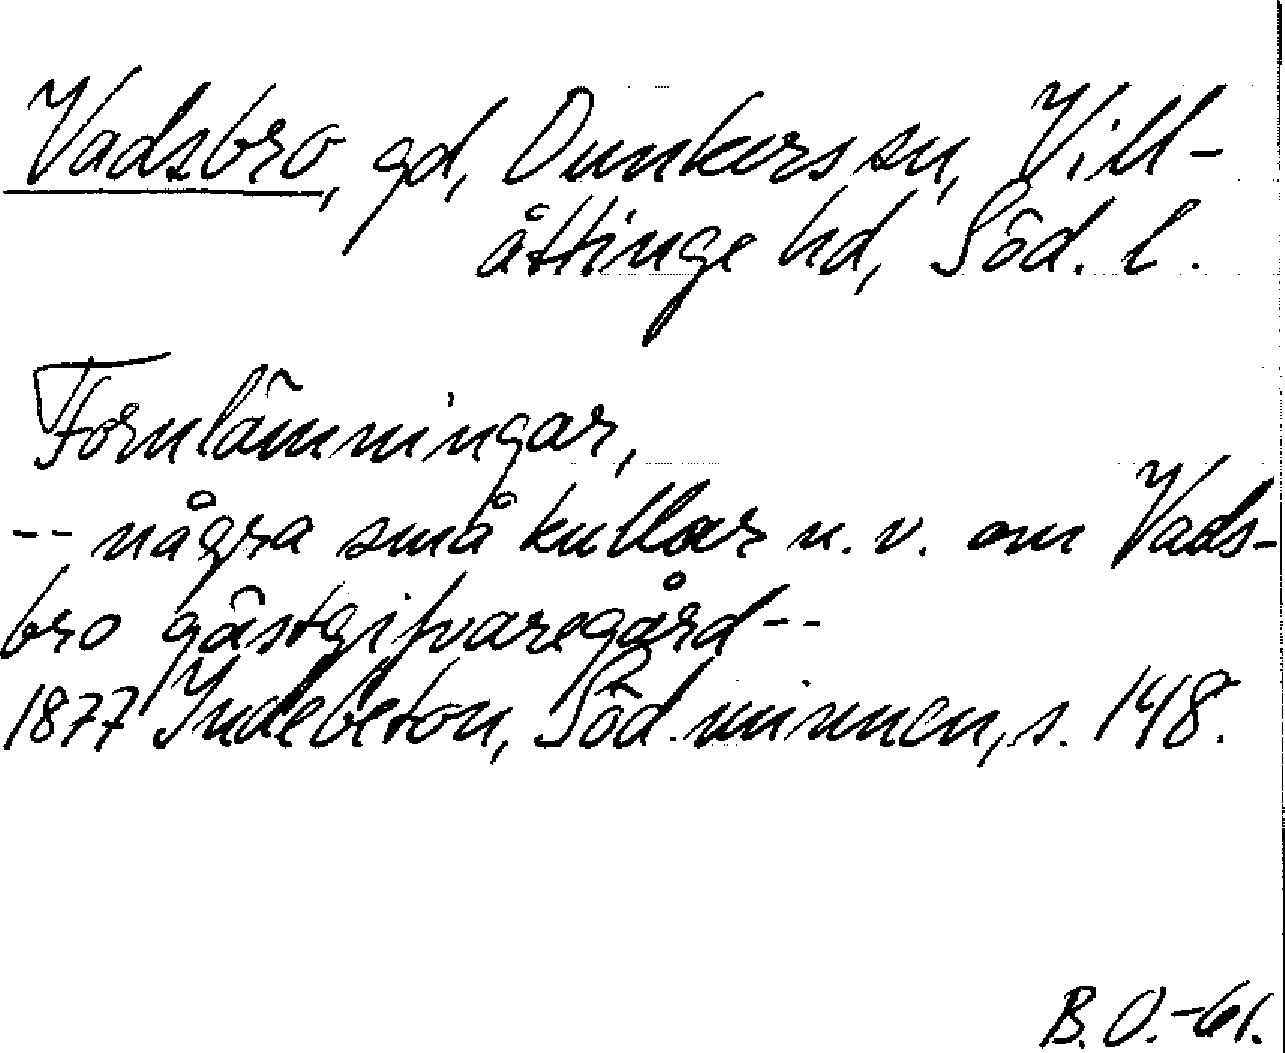 Vadsbro, gd, Dunkers sn, Vill-
åttinge hd, Söd. l.
Fornlämningar,
-- några små kullar n. v. om Vads-
bro gästgifvaregård --
1877 Indebetou, Söd. minnen, s. 148.
B. O. -61.